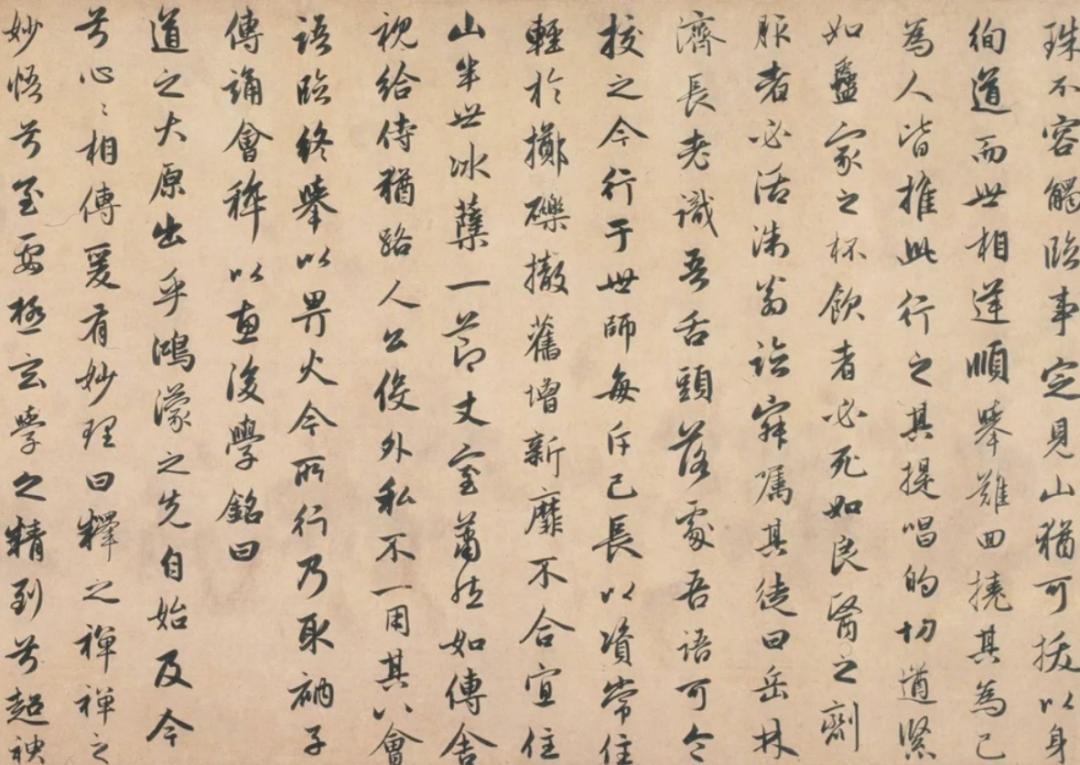 珠不容觸臨事定見山猶可拔以身
徇道而世相逆順舉難回撓其為已
為人皆推此行之其提唱的切遒緊
如蠱家之杯飲者必死如良醫之劑
服者必活洙翁詮寐囑其徒曰岳林
濟長老識吾舌頭落處吾語可令
挍之今行于世師每斥己長以資常住
輕於擲礫撤舊增新靡不合宜住
山半世冰蘗一節丈室蕭然如傳舍
視給侍猶路人公後外私不一用其八會
語臨終舉以畀火今所行乃耴衲子
傳誦會稡以惠後學銘曰
道之大原出乎鴻濛之先自始及今
兮心〻相傳爰有妙理曰釋之禪禪之
妙悟兮至要極玄學之精到兮超神